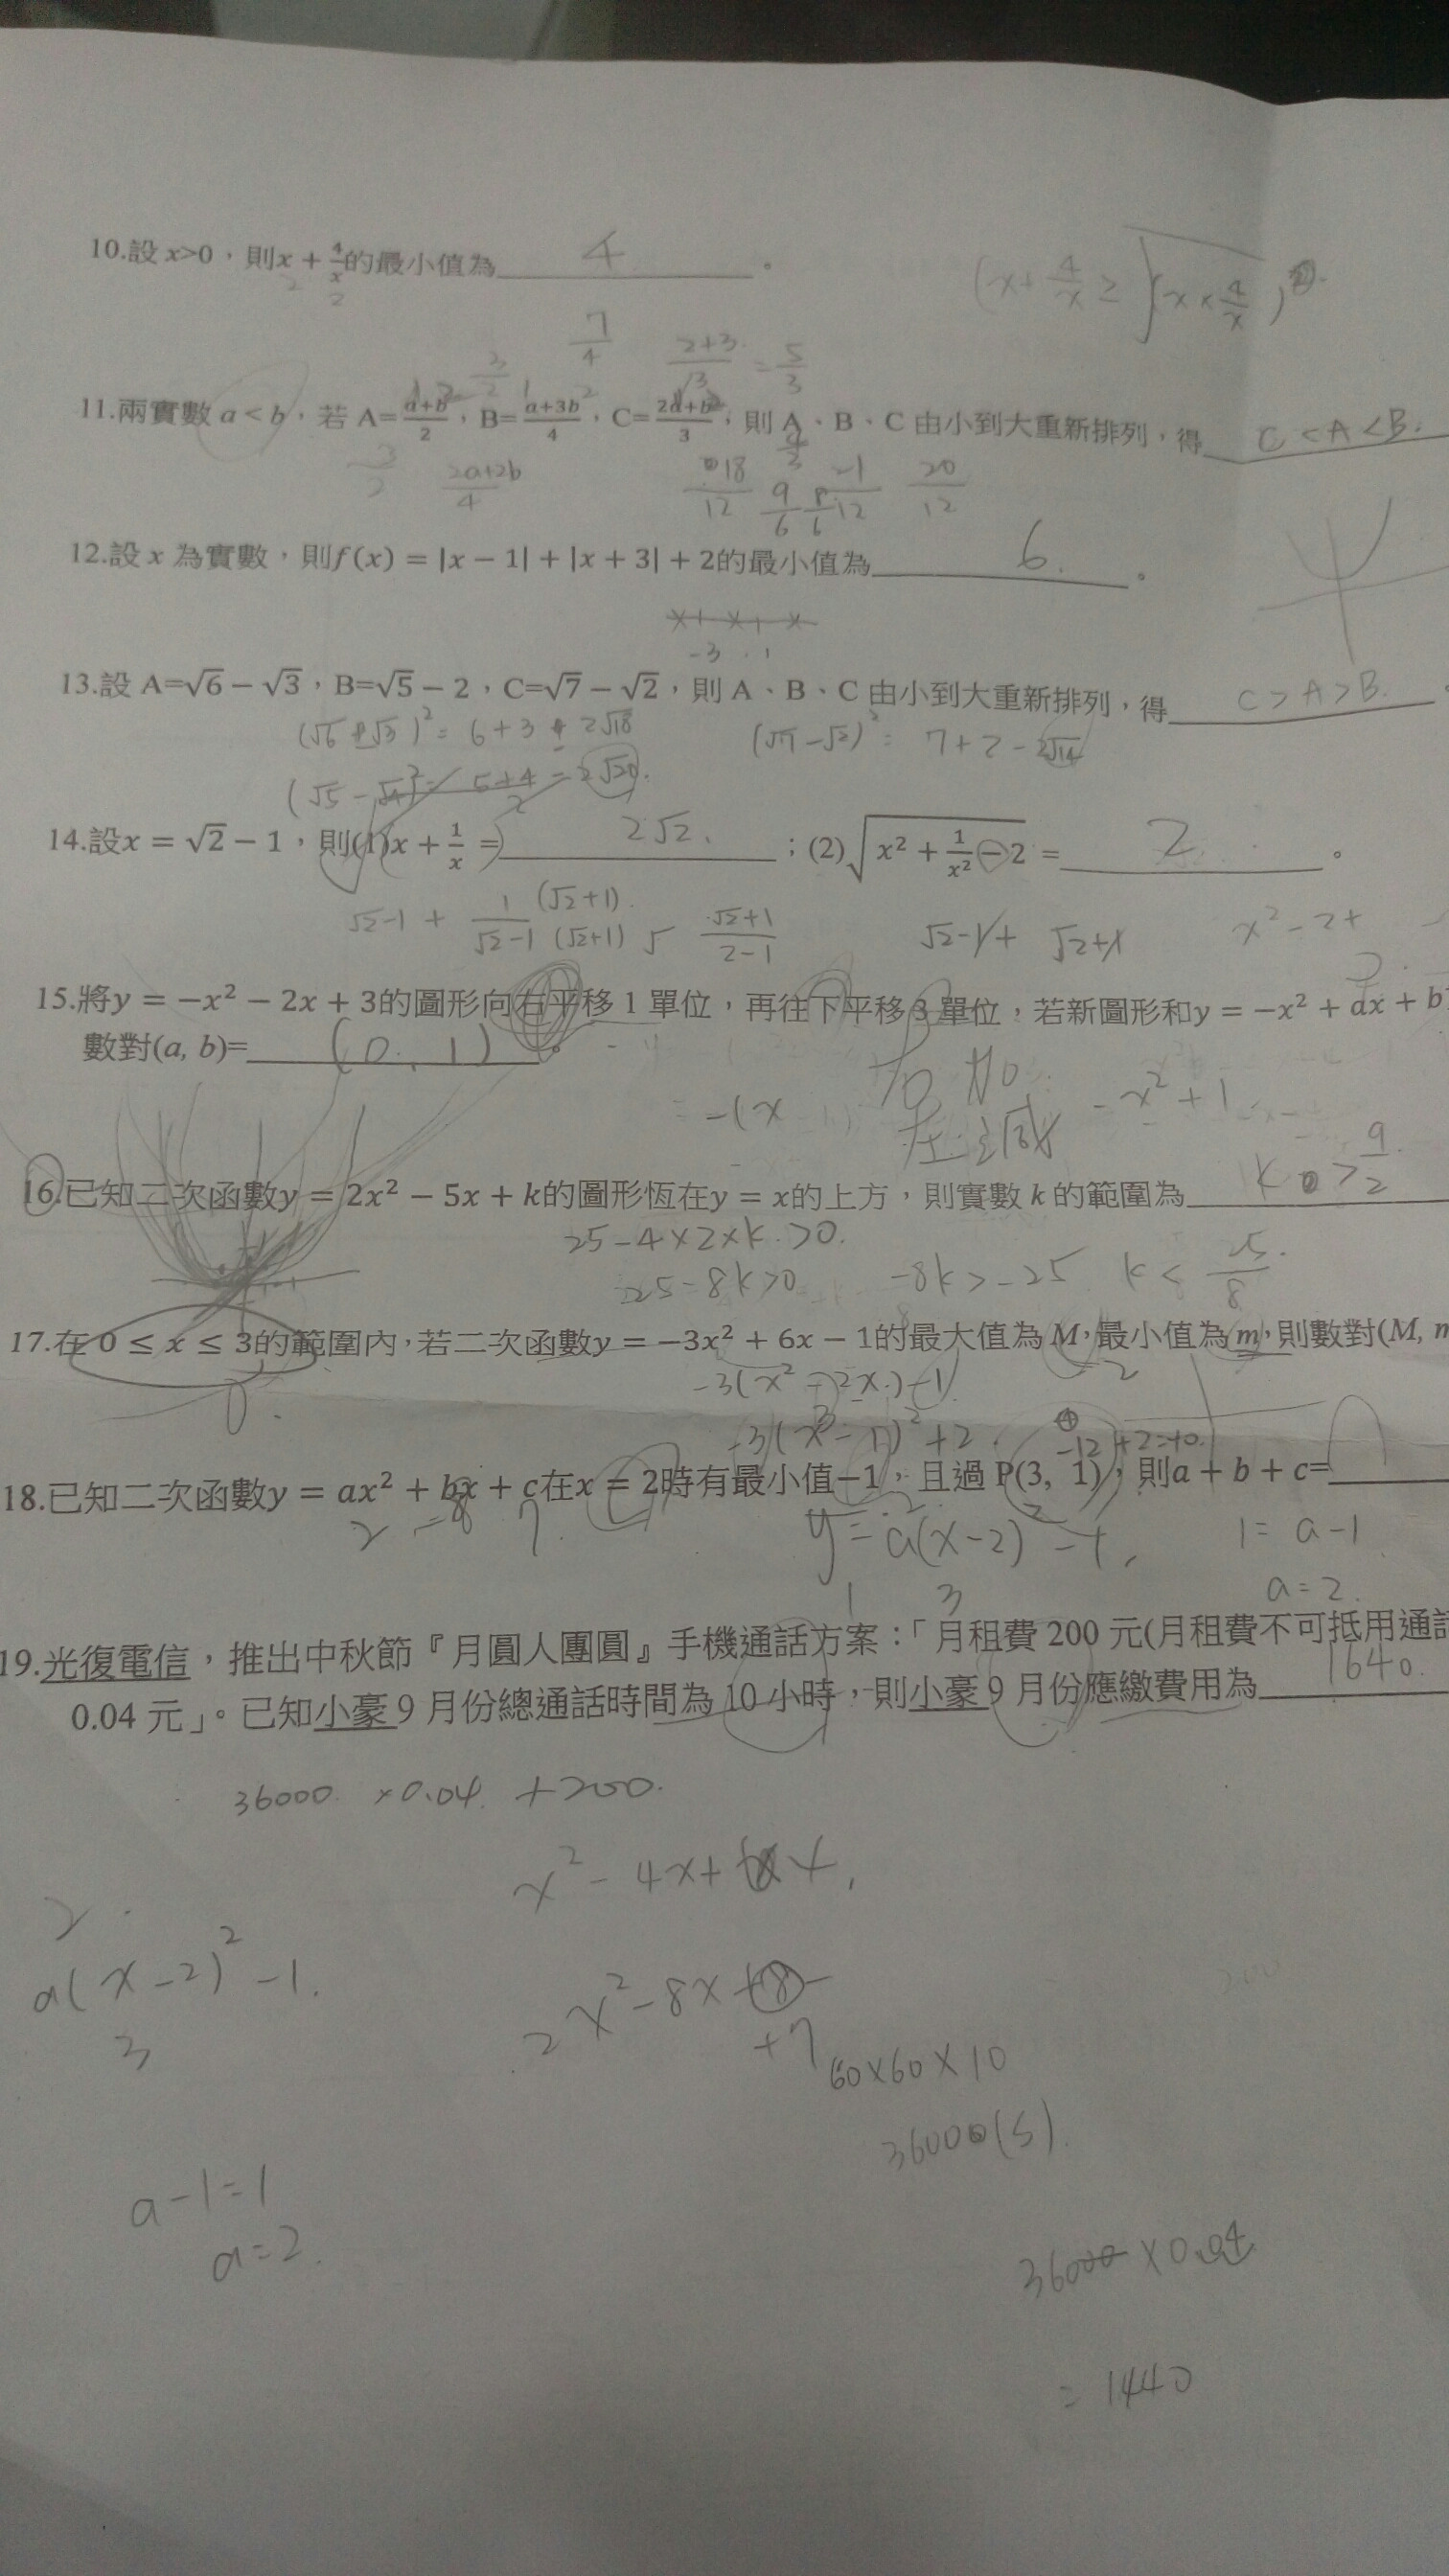 10.設 x>0，則x + 4/x的最小值為 4 。
(x + 4/x ≥ √(x × 4/x)
7/4  (2+3)/3 = 5/3
11.兩實數 a < b，若 A=(a+b)/2，B=(a+3b)/4，C=(2a+b)/3，則 A、B、C 由小到大重新排列，得 C < A < B.
3/2  (2a+2b)/4  18/12  9/6  8/6  -1/12  20/12
12.設 x 為實數，則f(x) = |x − 1| + |x + 3| + 2的最小值為 6. 。
-3  1
13.設 A=√6 − √3，B=√5 − 2，C=√7 − √2，則 A、B、C 由小到大重新排列，得 C > A > B.
(√7 − √2)² = 7 + 2 − 2√14
14.設x = √2 − 1，則(1)x + 1/x = 2√2. ；(2)√(x² + 1/x² − 2) = 2 。
√2-1 + 1/(√2-1) (√2+1)/(√2+1)  (√2+1)/(2-1)  √2-1+ √2+1  x²-2+
15.將y = −x² − 2x + 3的圖形向右平移 1 單位，再往下平移 3 單位，若新圖形和y = −x² + ax + b
數對(a, b)= (0, 1) 。
= -(x  右加  -x²+1
左減
16.已知二次函數y = 2x² − 5x + k的圖形恆在y = x的上方，則實數 k 的範圍為 k > 9/2
25-4×2×k>0.
25-8k>0  -8k>-25  k< 25/8
17.在 0 ≤ x ≤ 3的範圍內，若二次函數y = −3x² + 6x − 1的最大值為 M，最小值為 m，則數對(M, m
-3(x²-2x)-1  2
0.
-3(x-1)²+2.  -12+2=-10
18.已知二次函數y = ax² + bx + c在x = 2時有最小值−1，且過 P(3, 1)，則a + b + c= 1
2  -8  7  y = a(x-2)²-1.  1 = a-1
1  3  a=2.
19.光復電信，推出中秋節『月圓人團圓』手機通話方案：「月租費 200 元(月租費不可抵用通話
0.04 元」。已知小豪 9 月份總通話時間為 10 小時，則小豪 9 月份應繳費用為 1640.
36000. ×0.04. +200.
x²-4x+4.
2.
a(x-2)²-1.
3
2x²-8x+8
+7
60×60×10
36000(s).
a-1=1
a=2.
36000×0.04
= 1440